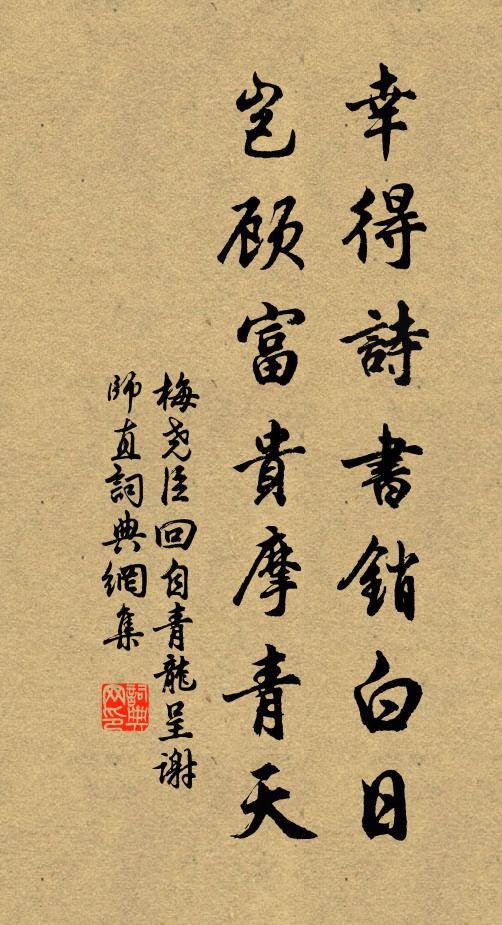 幸得詩書銷白日
豈顧富貴摩青天
梅尧臣回自青龍呈謝
師直詞典網集
詞典网印